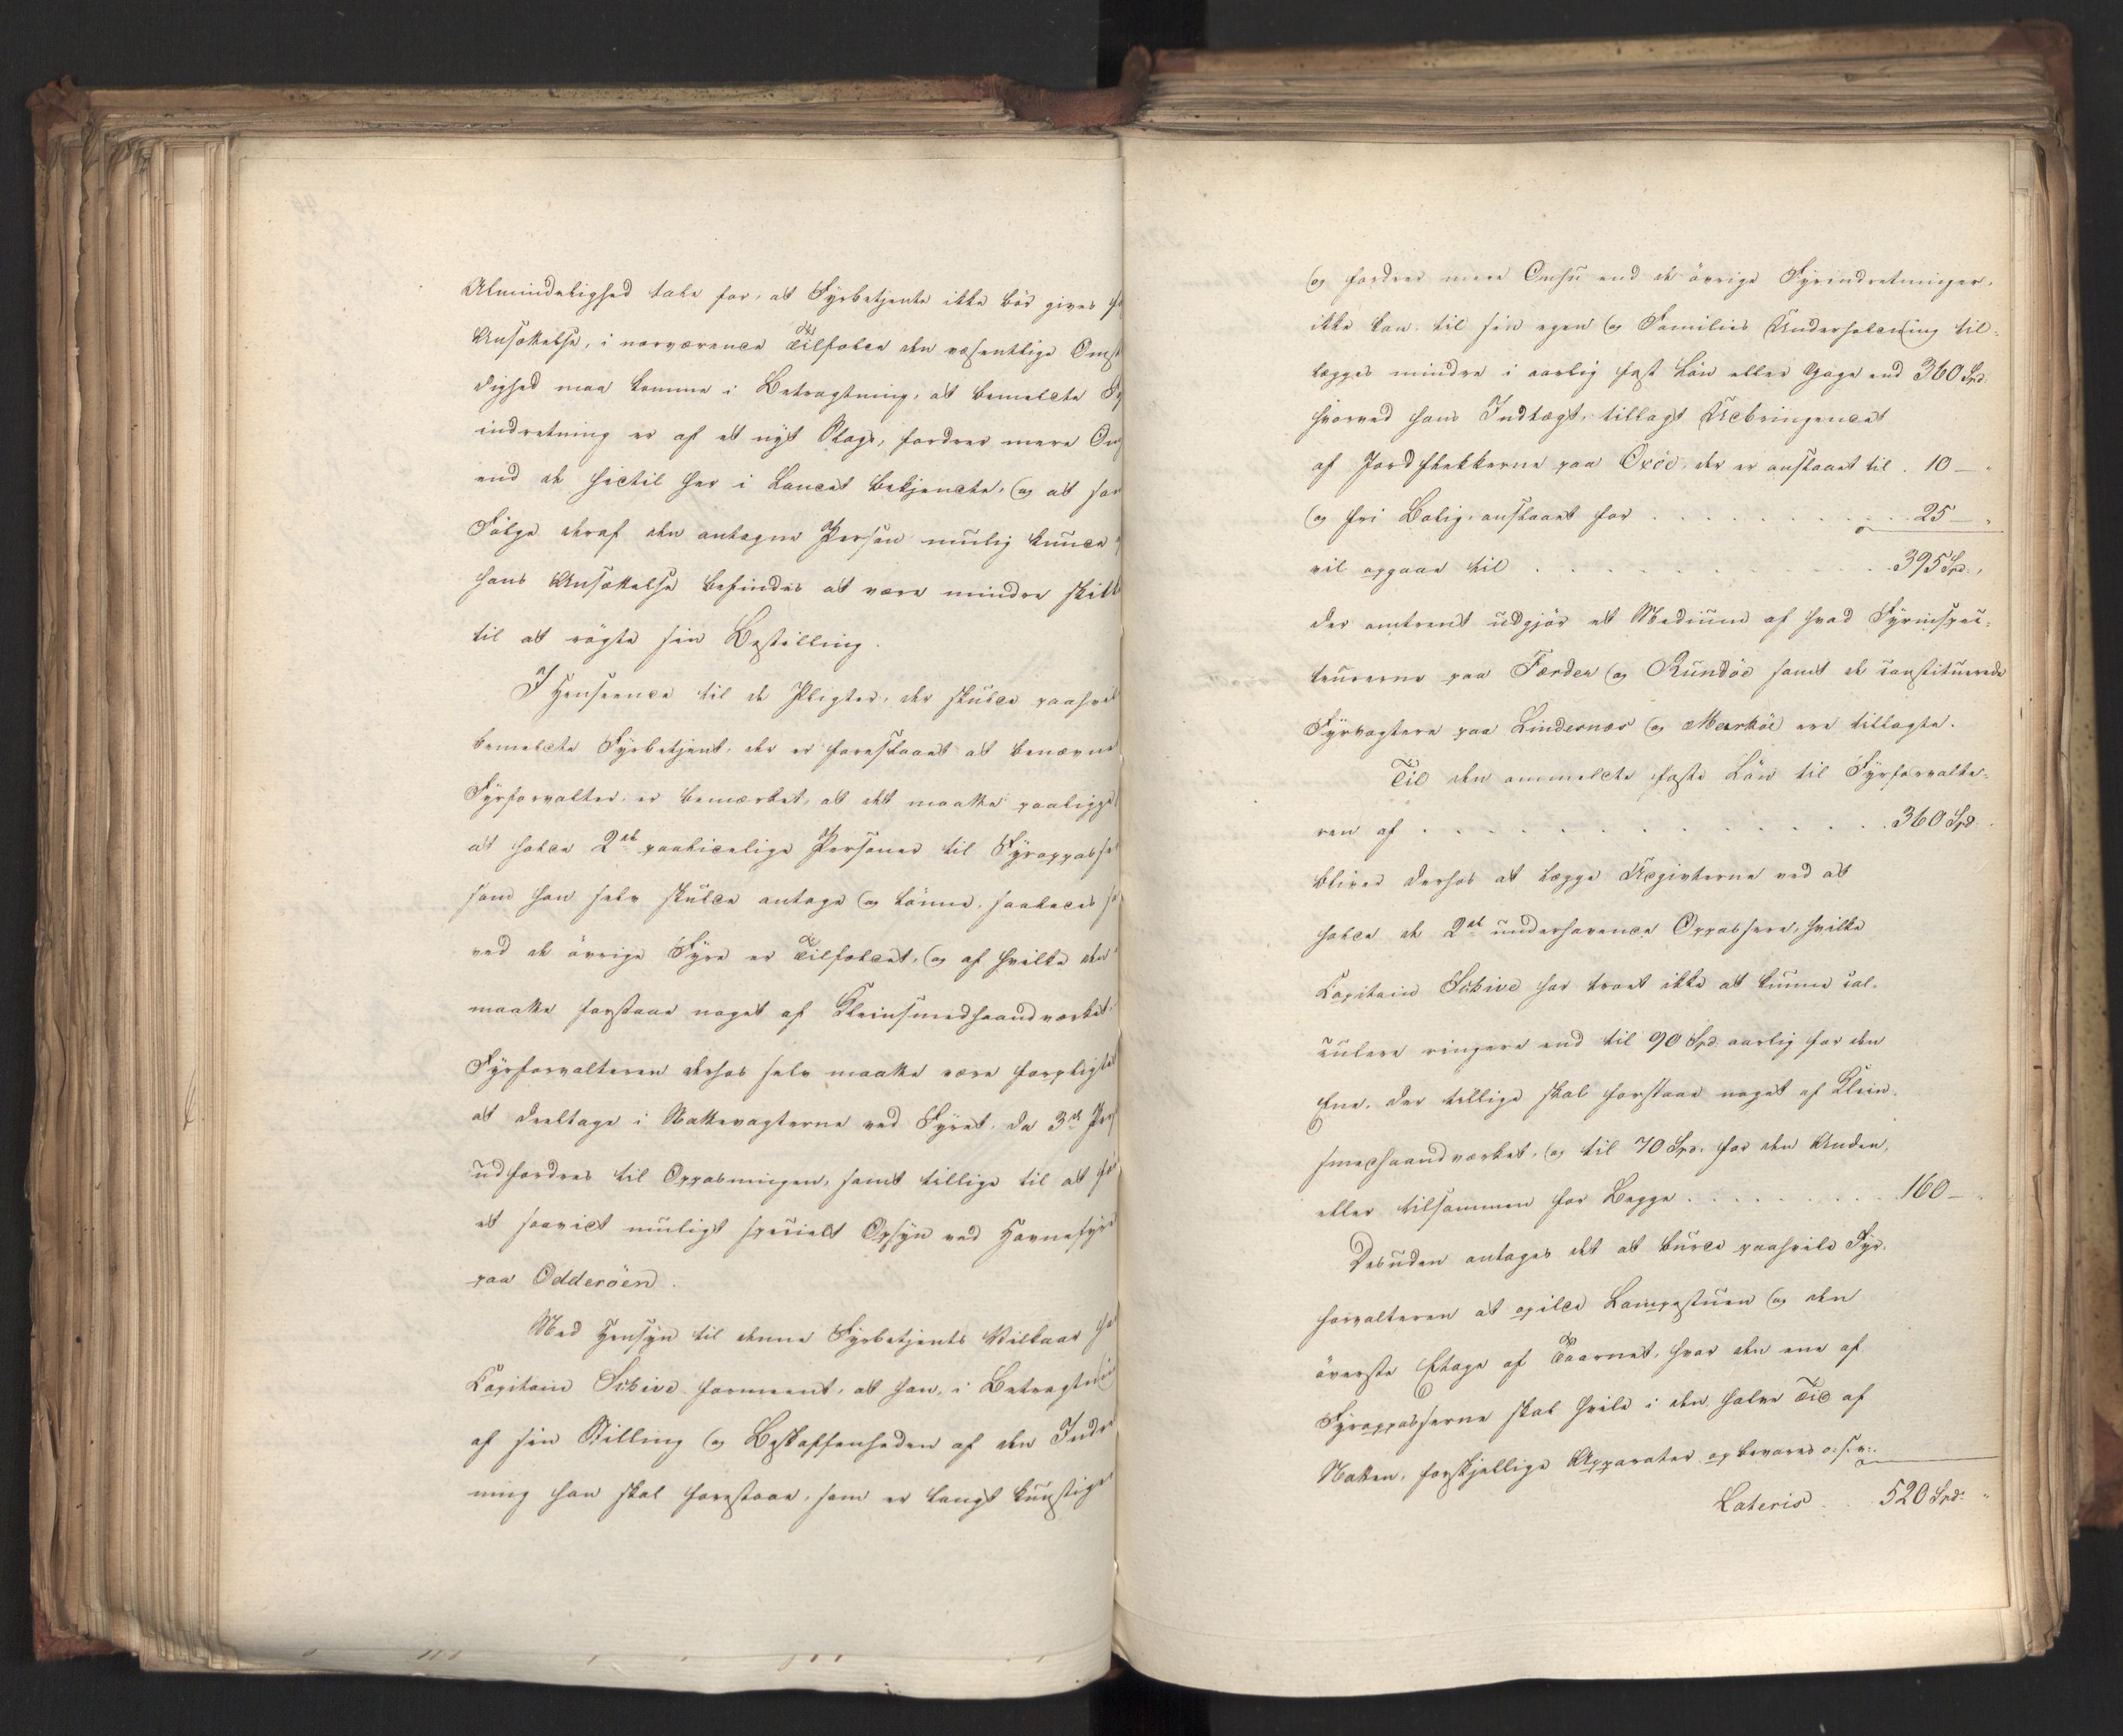 Almindelighed tale for, at Fyrbetjente ikke bör gives
Ansættelse, i nærværende Tilfælde den væsentlige Omst
dighed maa komme i Betragtning, at bemeldte Fy
indretning er af et nyt Slags, fordrer mere Om
end de hidtil her i Landet bekjendte, og at som
Følge deraf den antagne Person mulig kunde
hans Ansættelse befindes at være mindre skikk
til at røgte sin Bestilling.
I Henseende til de Pligter, der skulde paahvile
bemeldte Fyrbetjent, der er foreslaaet at benævne
Fyrforvalter, er bemærket, at det maatte paaligge
at holde 2de paalidelige Personer til Fyropassere
som han selv skulde antage og lönne, saaledes som
ved de övrige Fyre er Tilfældet, og af hvilke den
maatte forstaae noget af Kleinsmedhaandværket,
Fyrforvalteren derhos selv maatte være forpligtet
at deeltage i Nattevagterne ved Fyret, da 3de Pers
udfordres til Oppasningen, samt tillige til at
et saavidt muligt specielt Opsyn ved Havnefyret
paa Odderöen.
Med Hensyn til denne Fyrbetjents Vilkaar har
Capitain Schive formeent, at han, i Betragtning
af sin Stilling og Beskaffenheden af den Indret
ning han skal forestaae, som er langt kunstigere
og fordrer mere Omhu end de övrige Fyrindretninger,
ikke kan til sin egen og Families Underholdning til-
lægges mindre i aarlig fast Lön eller Gage end 360 Spd.
hvorved hans Indtægt, tillagt Udbringendet
af Jordflekkerne paa Oxöe, der er anslaaet til . 10 — "
og fri Bolig, anslaaet for . . . . . . . . 25 — "
vil opgaae til . . . . . . . . . . . 395 Spd.,
der omtrent udgjör et Medium af hvad Fyrinspec-
teurerne paa Færder og Rundöe samt de constituerede
Fyrvogtere paa Lindesnæs og Markö ere tillagte.
Til den ommeldte faste Lön til Fyrforvalte-
ren af . . . . . . . . . . . . . 360 Spd.
bliver derhos at lægge Udgivterne ved at
holde de 2de underhavende Oppassere, hvilke
Capitain Schive har troet ikke at kunne cal-
culere ringere end til 90 Spd. aarlig for den
Ene, der tillige skal forstaae noget af Klein-
smedhaandværket, og til 70 Spd. for den Anden,
eller tilsammen for Begge . . . . . . . . 160 — "
Desuden antages det at burde paahvile Fyr-
forvalteren at opilde Lampestuen og den
överste Etage af Taarnet, hvor den ene af
Fyropasserne skal hvile i den halve Tid af
Natten, forskjellige Apparater opbevares o. s. v.
Lateris . . 520 Spd. "